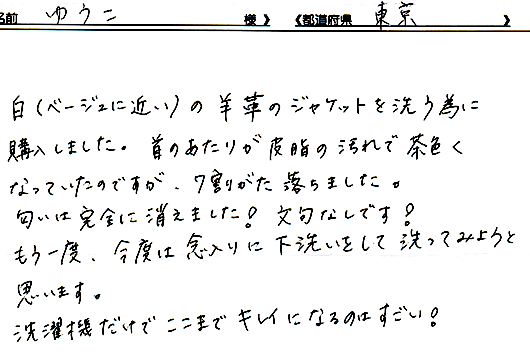 名前 ゆうこ 様 》 《都道府県 東京 》
白(ベージュに近い)の羊革のジャケットを洗う為に
購入しました。首のあたりが皮脂の汚れで茶色く
なっていたのですが、7割がた落ちました。
匂いは完全に消えました!文句なしです!
もう一度、今度は念入りに下洗いをして洗ってみようと
思います。
洗濯機だけでここまでキレイになるのはすごい!